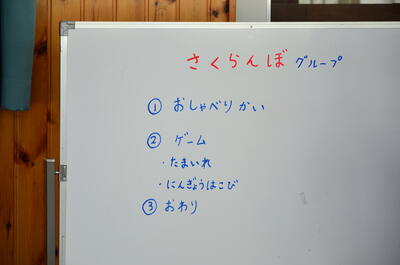 さくらんぼ グループ
① おしゃべりかい
② ゲーム
・たまいれ
・にんぎょうはこび
③ おわり